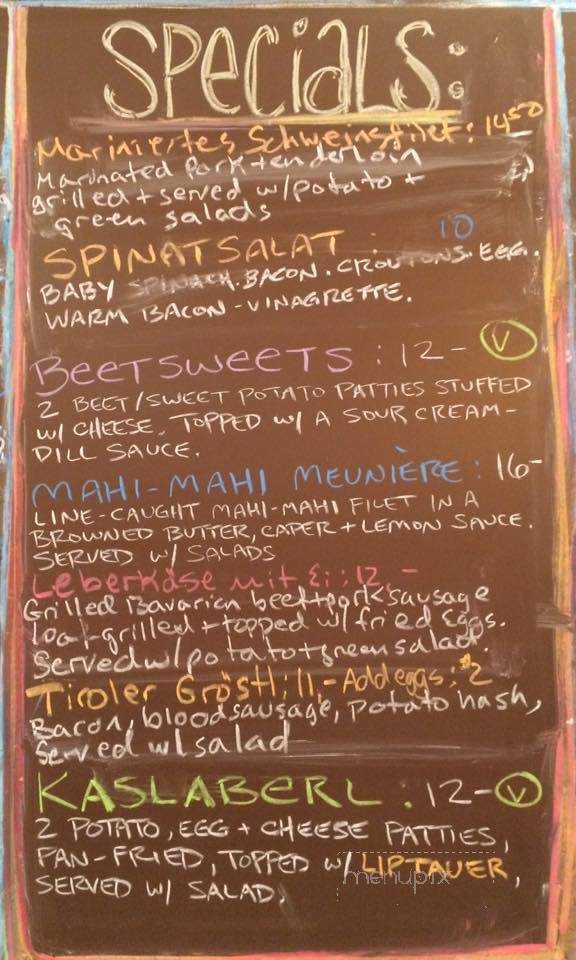 SPECIALS:
Mariniertes Schweinsfilet: 14.50
Marinated Pork tenderloin
grilled + served w/potato +
green salads
SPINATSALAT: 10
BABY SPINACH. BACON. CROUTONS. EGG.
WARM BACON-VINAGRETTE.
BEETSWEETS: 12- V
2 BEET/SWEET POTATO PATTIES STUFFED
W/ CHEESE, TOPPED W/ A SOUR CREAM-
DILL SAUCE.
MAHI-MAHI MEUNIÈRE: 16-
LINE-CAUGHT MAHI-MAHI FILET IN A
BROWNED BUTTER, CAPER + LEMON SAUCE.
SERVED W/ SALADS
Leberkäse mit Ei: 12,-
Grilled Bavarian beef+pork sausage
loaf grilled + topped w/ fried Eggs.
Served w/ potato+green salad.
Tiroler Gröstl: 11,- Add eggs: $2
Bacon, bloodsausage, potato hash,
served w/ salad
KASLABERL: 12- V
2 POTATO, EGG + CHEESE PATTIES,
PAN-FRIED, TOPPED W/ LIPTAUER,
SERVED W/ SALAD.
menupix